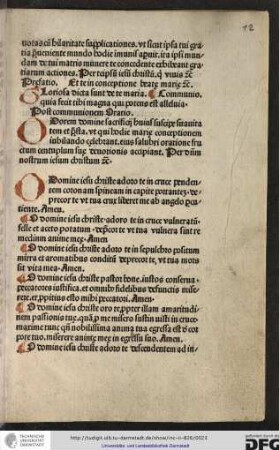 12
nota acu hilaritate supplicationes. vt sicut ipsa tui gra
tia hueniente mundo hodie imunis apuit. ita ipsi mun
dam de tui matris munere te concedente exhibeant gra
tiarum actiones. Per teipsū iesū christū. q̃ viuis ⁊c̃
Prefatio. Et te in conceptione beate marie ⁊c̃.
Gloriosa dicta sunt de te maria. Communio.
quia fecit tibi magna qui potens est alleluia.
Post communionem Oratio.
Odorem domine sacrificij huius suscipe suauita
tem et p̃sta. vt qui hodie marie conceptionem
iubilando celebrant. eius salubri oratione fru
ctum centuplum sue deuotionis accipiant. Per dñm
nostrum iesum christum ⁊c̃
O Domine iesu christe adoro te in cruce penden
tem coronam spineam in capite portantez. de
precor te vt tua crux liberet me ab angelo per
tiente. Amen.
O domine iesu christe adoro te in cruce vulneratū
felle et aceto potatum. dep̃cor te vt tua vulnera sint re
medium anime mee. Amen
O domine iesu christe adoro te in sepulchro positum
mirra et aromatibus conditū deprecor te. vt tua mors
sit vita mea. Amen.
O domine iesu christe pastor bone. iustos conserua.
peccatores iustifica. et omnibꝰ fidelibus defunctis mise
rere. et ꝓpitius esto mihi peccatori. Amen.
O domine iesu christe oro te propter illam amaritudi
nem passionis tue. quā ꝓ me misero sustinuisti in cruce.
maxime tunc qñ nobilissima anima tua egressa est de cor
pore tuo. miserere anime mee in egressu suo. Amen.
O domine iesu christe adoro te descendentem ad in-
http://tudigit.ulb.tu-darmstadt.de/show/inc-ii-826/0023
Universitäts- und Landesbibliothek Darmstadt
TECHNISCHE
UNIVERSITÄT
DARMSTADT
DFG